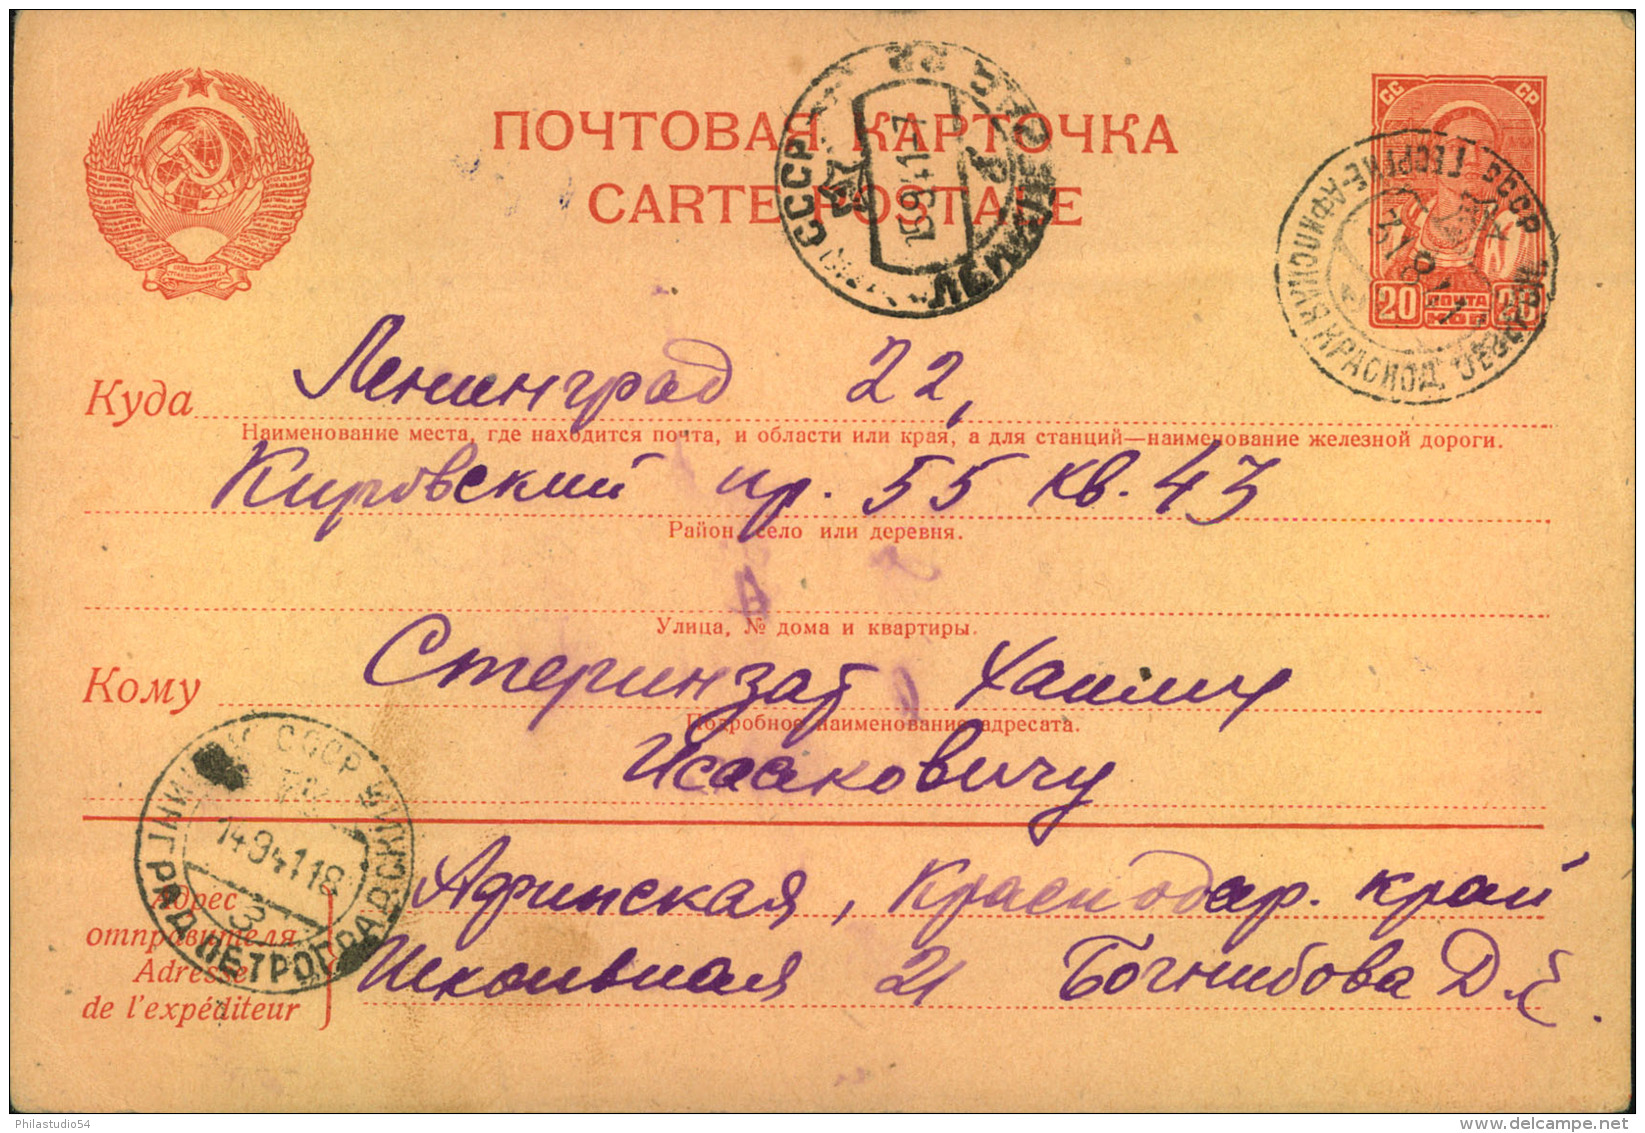 ПОЧТОВАЯ КАРТОЧКА
CARTE POSTALE
СС СР
20 ПОЧТА 20
КОП
СССР
15 9 41-7
ЛЕНИНГРАД 22
Куда Ленинград 22,
Наименование места, где находится почта, и области или края, а для станций—наименование железной дороги.
Кировский пр. 55 кв. 43
Район, село или деревня.
Улица, № дома и квартиры.
Кому Стеринзат
Подробное наименование адресата.
Исааковичу
СССР
14 9 41 18
3
ПЕТРОГРАДСКИЙ
Адрес отправителя
Adresse de l'expéditeur
Афипская, Краснодар. край
21 Д. Е.
Philastudio54
www.delcampe.net